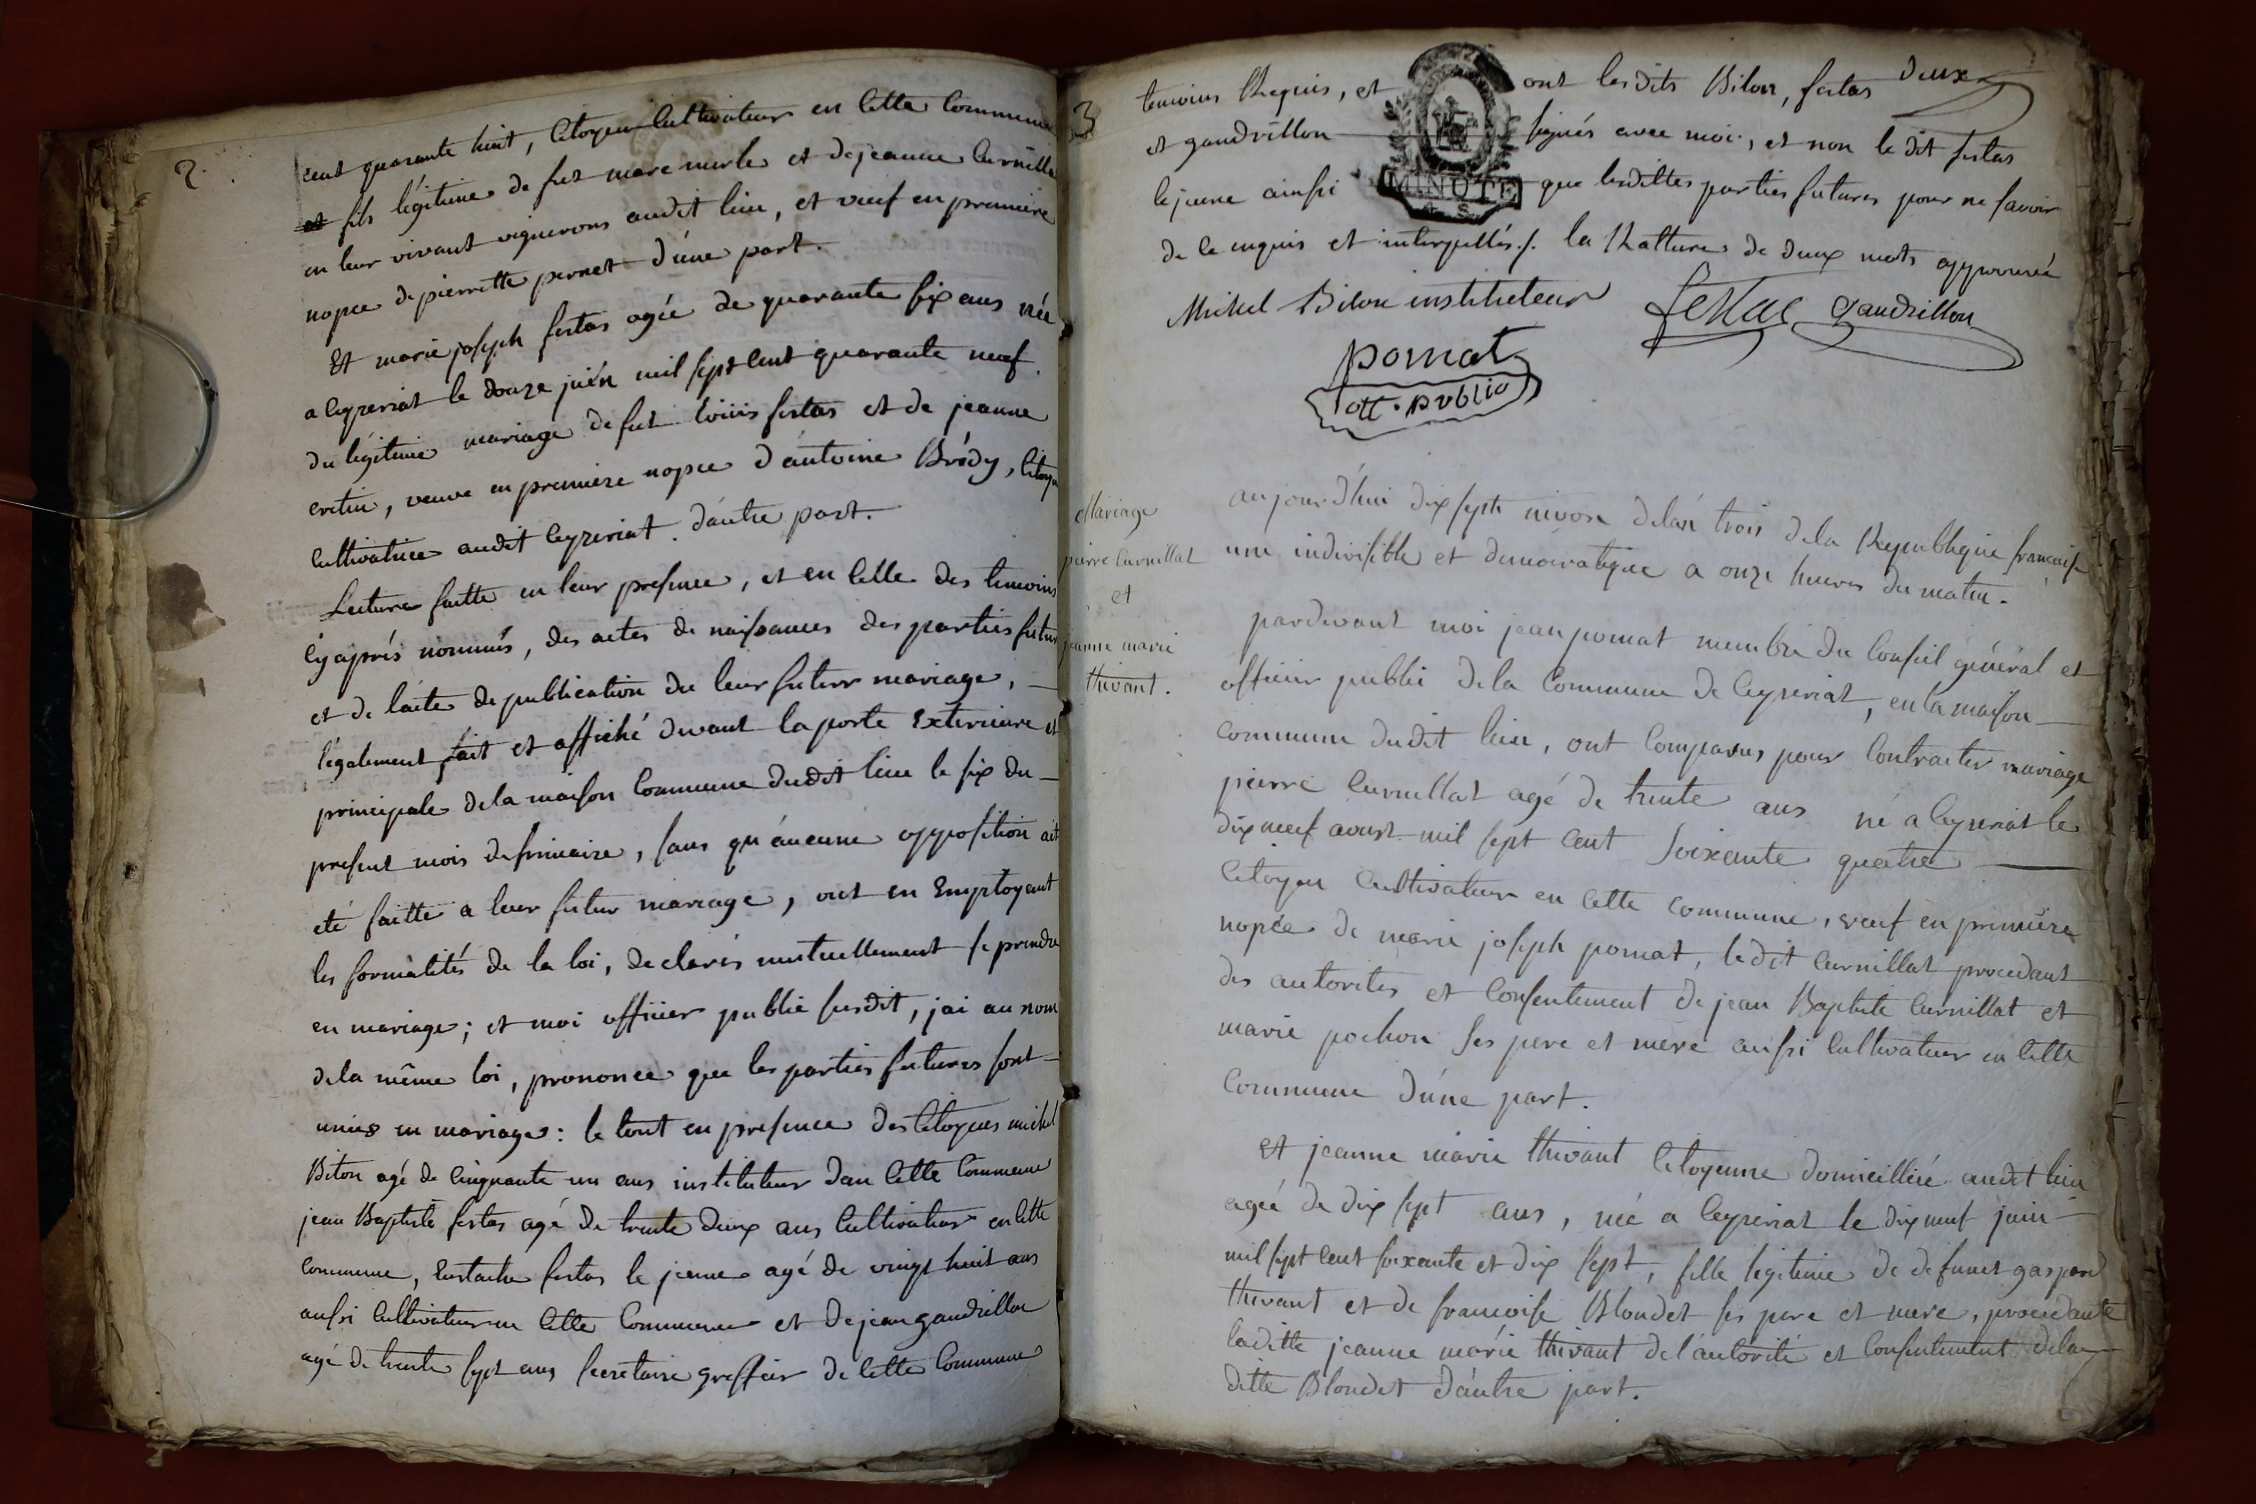 2.
cent quarante huit, Citoyen Cultivateur en Cette Commune
et fils légitime de fut marc merle et de jeanne Curnillat
en leur vivant vignerons audit lieu, et veuf en premiere
nopce de pierrette pernet d'une part.
Et marie joseph festas agée de quarante six ans née
a Ceyzeriat le douze juin mil sept Cent quarante neuf
du légitime mariage de fut loüis festas et de jeanne
veuve en premiere nopce d'antoine Brédy, Citoye
Cultivatrice audit Ceyzeriat d'autre part.
Lecture faitte en leur presence, et en Celle des temoins
Cy après nommés, des actes de naissances des parties futur
et de l'acte de publication du leur futur mariage,
légalement fait et affiché devant la porte Exterieure et
principale de la maison Commune dudit lieu le six du
present mois de frimaire, sans qu'aucune opposition ait
eté faitte a leur futur mariage, ont en Employant
les formalités de la loi, declarés mutuellement se prendre
en mariage; et moi officier public susdit, jai au nom
de la même loi, prononce que les parties futures sont
unies en mariage: le tout en presence des Citoyens michel
Bilon agé de Cinquante un ans instituteur dan Cette Commune
jean Baptiste festas agé de trente deux ans Cultivateur en Cette
Commune, Eustache festas le jeune agé de vingt huit ans
aussi Cultivateur en Cette Commune et de jean gaudrillon
agé de trente sept ans secretaire greffier de Cette Commune
3
temoins Requis, et ont lesdits Bilon, festas deux
et gaudrillon signés avec moi, et non le dit festas
le jeune ainsi que lesdittes parties futures pour ne savoir
de ce enquis et interpellés ./. la Ratture de deux mots approuvée
MINUTE
Michel Bilon instituteur festas gaudrillon
pomat
off. public
Mariage
pierre Curnillat
et
jeanne marie
thivant.
aujourd'hui dix sept nivose de l'an trois de la Republique francaise
une indivisible et democratique a onze heures du matin.
pardevant moi jean pomat membre du Conseil général et
officier public de la Commune de Ceyzeriat, en la maison
Commune dudit lieu, ont Comparus, pour Contracter mariage
pierre Curnillat agé de trente ans né a Ceyzeriat le
dix neuf avust mil sept Cent soixante quatre
Citoyen Cultivateur en Cette commune, veuf en premiere
nopce de marie joseph pomat, le dit Curnillat procedant
des autorités et Consentement de jean Baptiste Curnillat et
marie pochon ses pere et mere aussi Cultivateur en Cette
Commune d'une part.
et jeanne marie thivant Citoyenne domicilliée audit lieu
agée de dix sept ans, née a Ceyzeriat le dix neuf juin
mil sept Cent soixante et dix sept, fille légitime de defunct gaspard
thivant et de francoise Blondet ses pere et mere, procedante
laditte jeanne marie thivant de l'autorité et Consentement de la
ditte Blondet d'autre part.